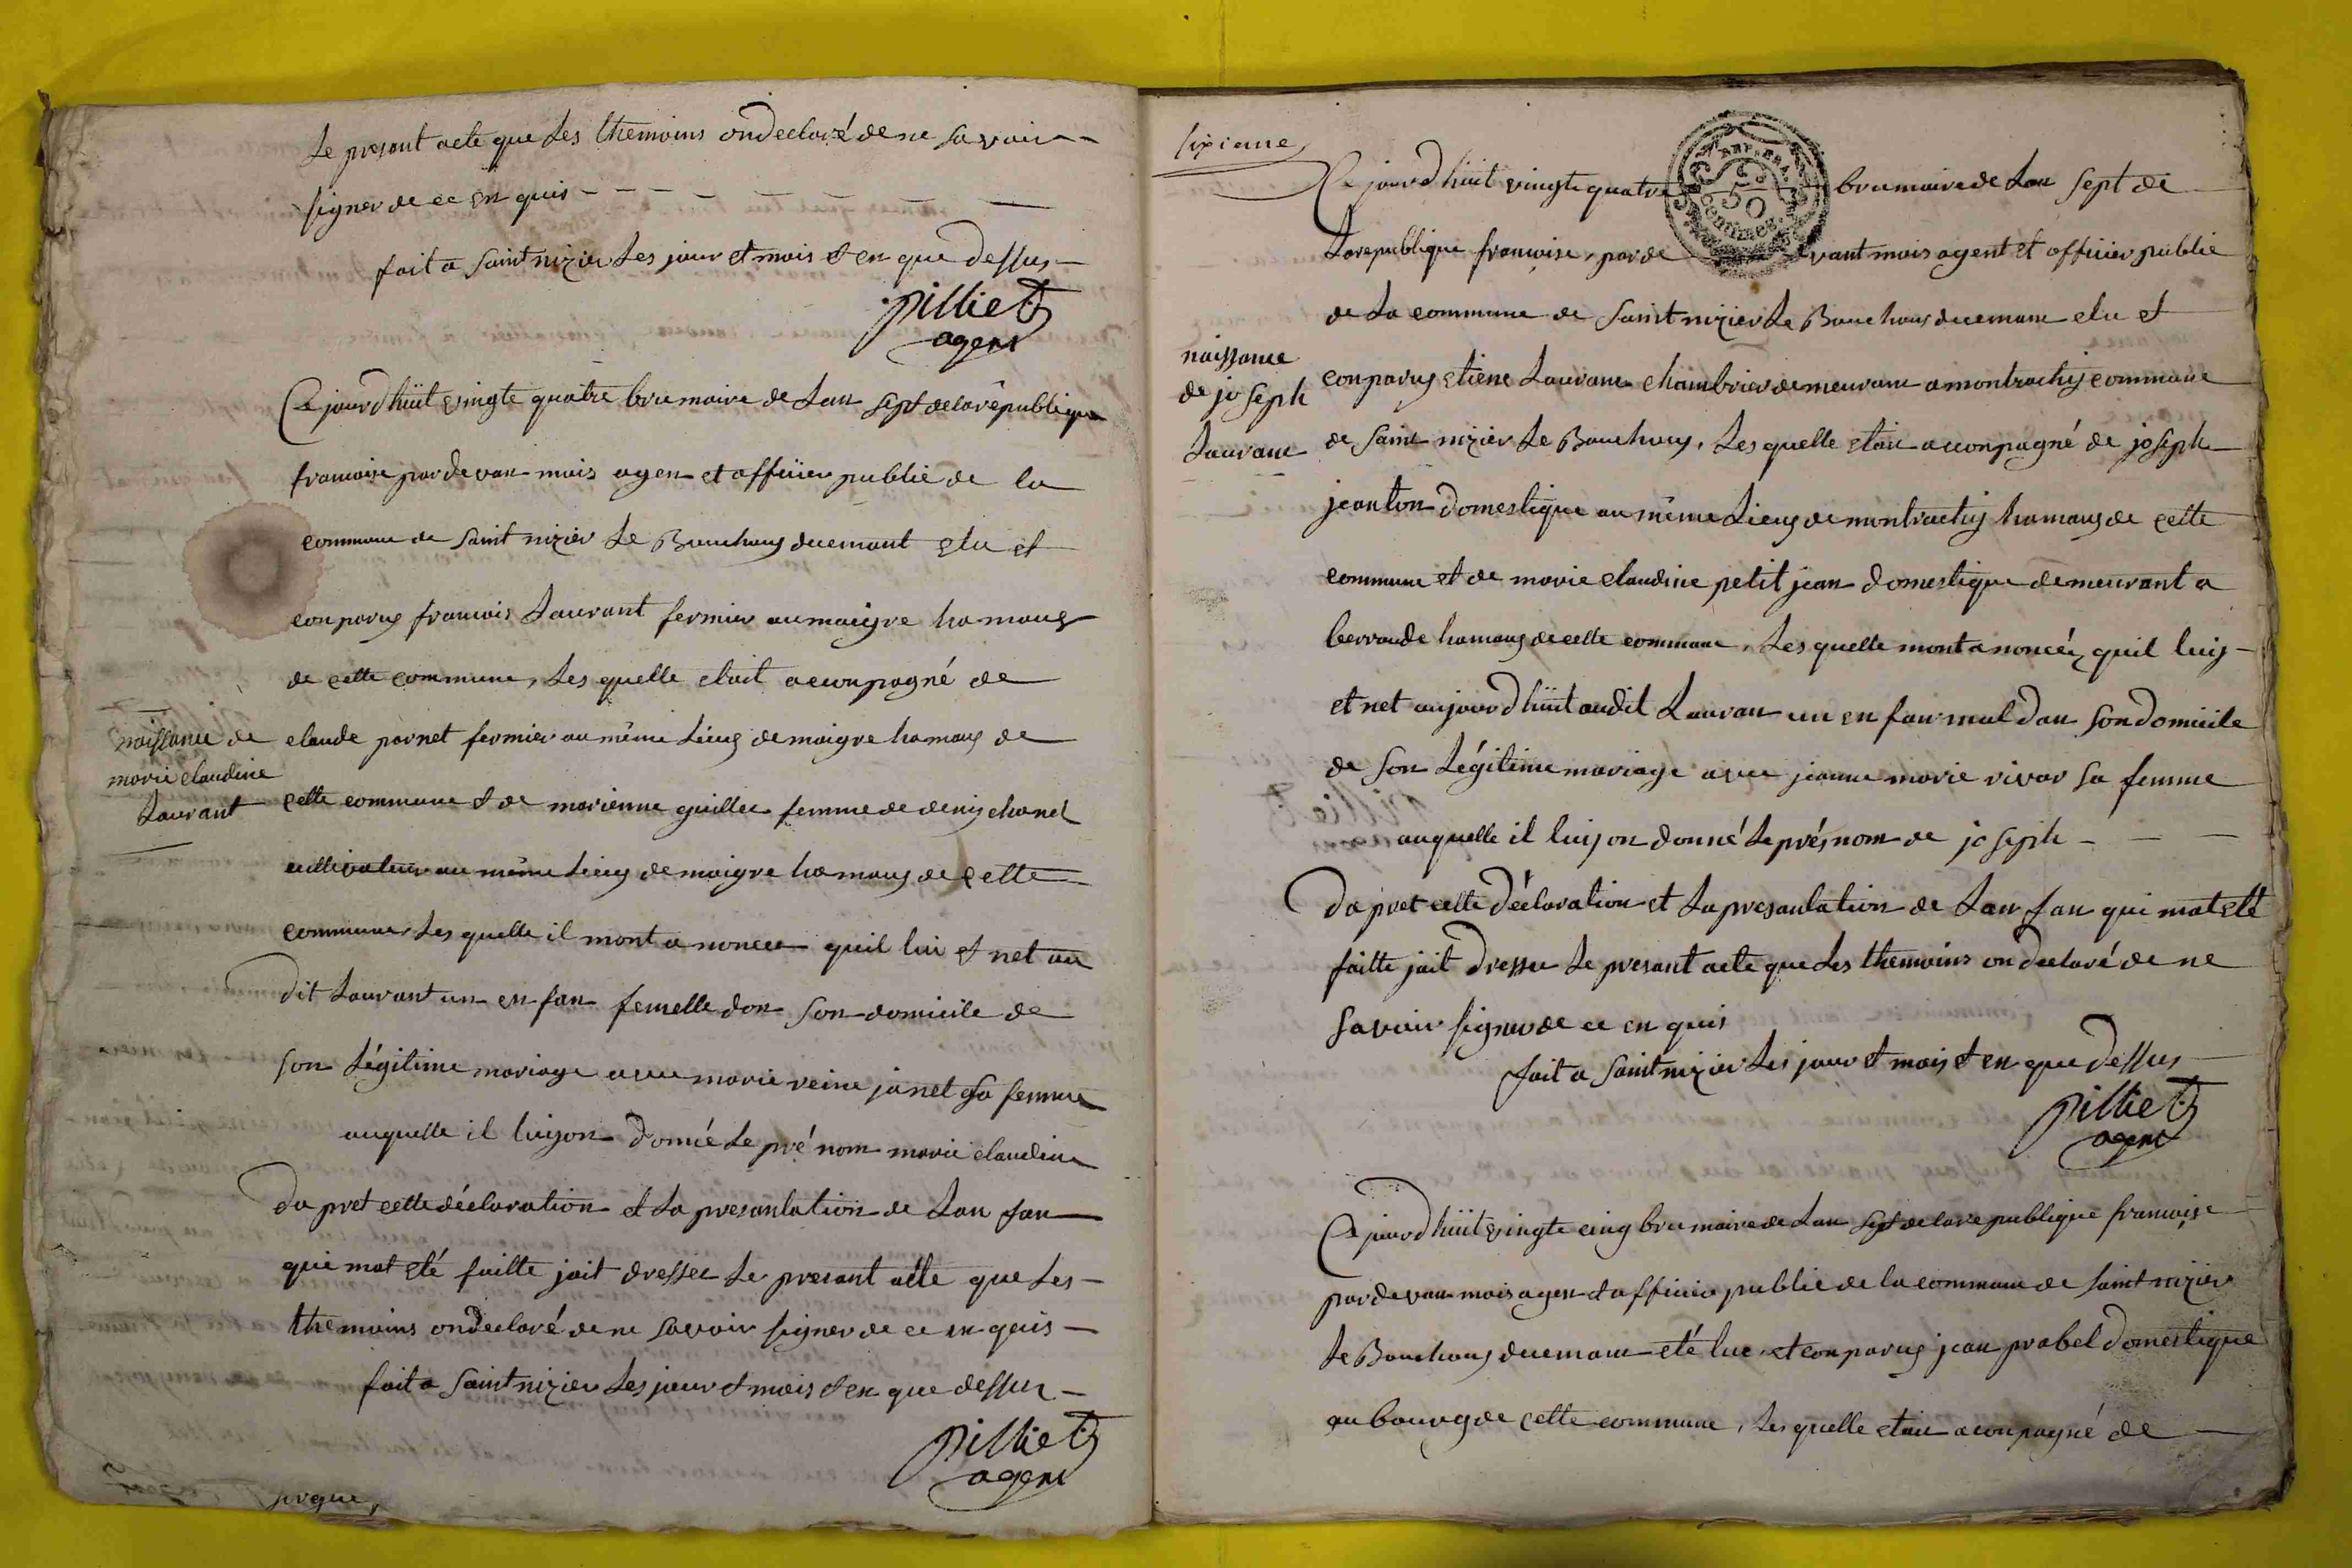 Le presant acte que Les themoins ondeclaré de ne savoir
signer de ce en quis
fait a saint nizier Les jour et mois et en que dessus
pilliet
agent
Ce jourdhuit vingte quatre brumaire de Lan sept de la republique
francoise par devan mois agen et officier public de la
commune de saint nizier Le Bouchoux ducmant elu et
conparus francois Laurant fermier au maigre hamaug
de cette commune, Les quelle etoit aconpagné de
naissance de
marie claudine
Laurant
claude parnet fermier au même Lieug de maigre hamaug de
cette commune et de marienne guillee femme de denis chanel
cultivateur au même Lieug de maigre hamaug de cette
commune Les quelle il mont anoncee quil lui et net au
dit Laurant un en fan femelle dan son domicile de
son Légitime mariage avec marie reine janet sa femme
auquelle il luy on donné Le pré nom marie claudine
Da pret cette déclaration et La presantation de Lan fan
qui mat eté faitte jait dresser Le presant acte que Les
themoins ondeclaré de ne savoir signer de ce en quis
fait a saint nizier Les jour et mois et en que dessus
pilliet
agent
sixieme
Ce jourdhuit vingte quatre brumaire de Lan sept de
REP. FRA.
50
CENTIMES
La republique francoise, par de vant mois agent et officier public
de La commune de saint nizier Le Bouchoux ducmant elu et
naissance
de joseph
Laurant
conparus etiene Lauran chambrier demeurant a montrachy commune
de saint nizier Le Bouchoux, Les quelle etoit aconpagné de joseph
jeanton domestique au même Lieug de montrachy hamaug de cette
commune et de marie claudine petit jean domestique demeurant a
berroude hamaug de cette commune, Les quelle mont anoncéé quil luy
et net aujourdhuit audit Lauran un en fan mal dan son domicile
de son Légitime mariage avec jeanne marie vivar sa femme
auquelle il luy on donné Le pré nom de joseph
Da pret cette Déclaration et La presantation de Lan fan qui mat eté
faitte jait Dresser Le presant acte que Les themoins ondeclaré de ne
savoir signer de ce en quis
fait a saint nizier Les jour et mois et en que dessus
pilliet
agent
Ce jourdhuit vingte cinq brumaire de Lan sept de la republique francoise
par devan mois agen et officier public de la commune de saint nizier
Le Bouchoux ducman eté lue, et conparus jean prabel domestique
au bourg de cette commune, Les quelle etoit aconpagné de